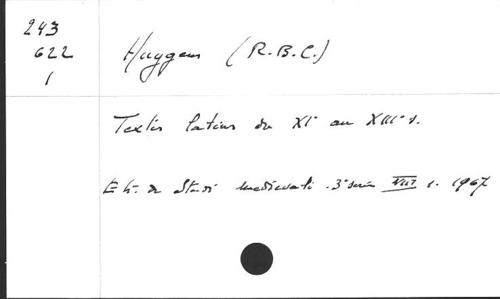 243
622
1
Huygens (R.B.C.)
Textes latins du XIe au XIIIe s.
Ext. de Studi medievali. 3e serie VIII 1. 1967